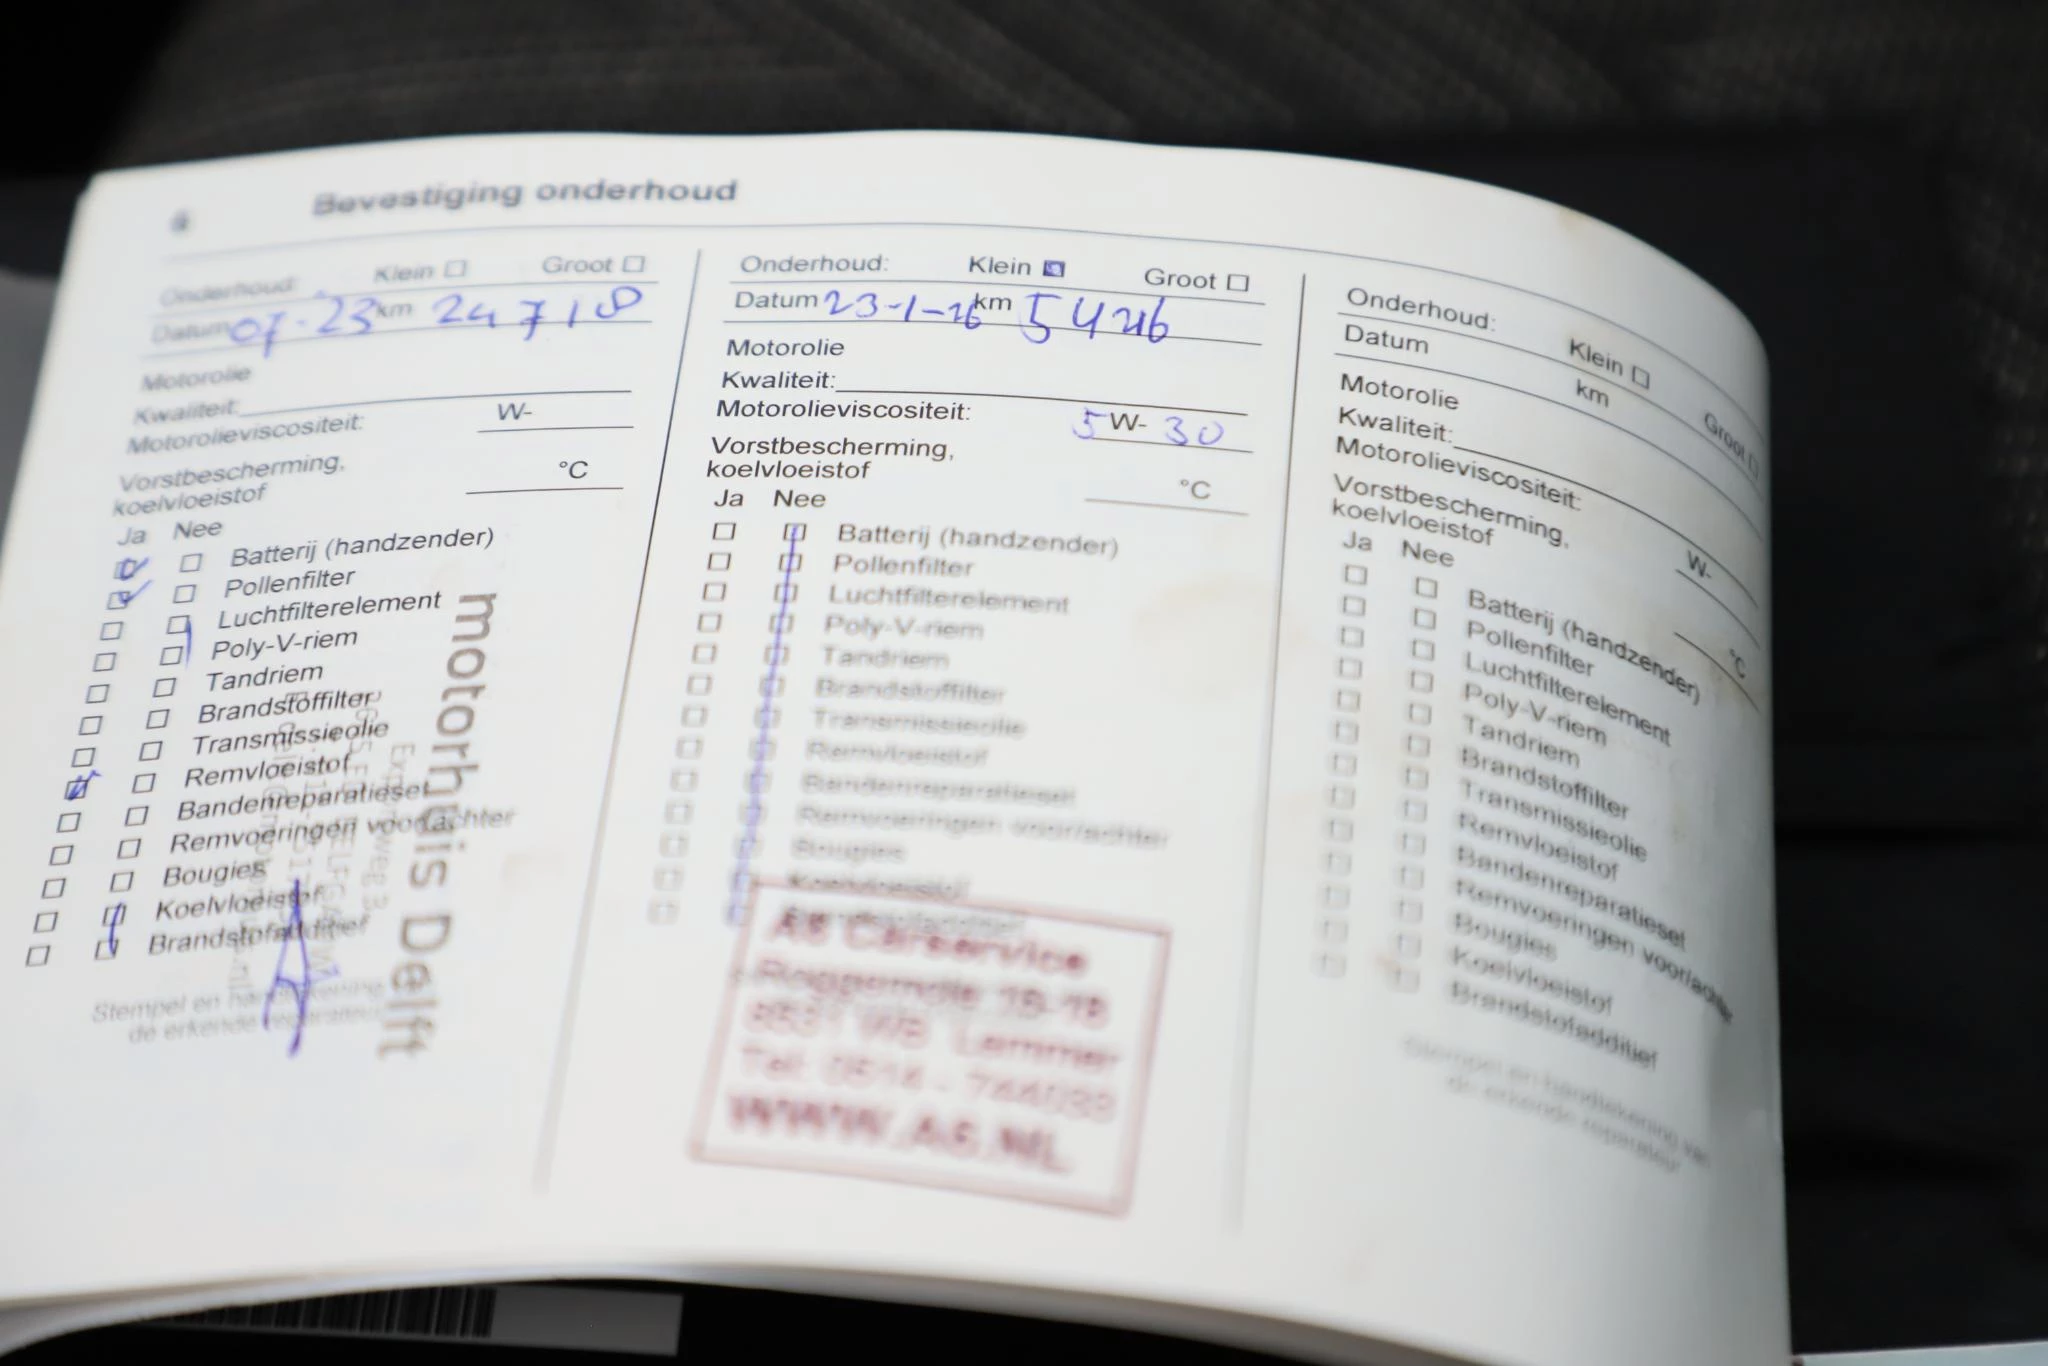 Bevestiging onderhoud
Onderhoud: Klein Groot
Datum 07-23 km 24718
Motorolie
Kwaliteit:
Motorolieviscositeit: W-
Vorstbescherming,
koelvloeistof °C
Ja Nee
Batterij (handzender)
Pollenfilter
Luchtfilterelement
Poly-V-riem
Tandriem
Brandstoffilter
Transmissieolie
Remvloeistof
Bandenreparatieset
Remvoeringen voor/achter
Bougies
Koelvloeistof
Brandstofadditief
Stempel en handtekening
de erkende reparateur
motorhuis Delft
Onderhoud: Klein Groot
Datum 23-1-26 km
Motorolie
Kwaliteit:
Motorolieviscositeit: 5 W- 30
Vorstbescherming,
koelvloeistof °C
Ja Nee
Batterij (handzender)
Pollenfilter
Luchtfilterelement
Poly-V-riem
Tandriem
Brandstoffilter
Transmissieolie
Remvloeistof
Bandenreparatieset
Remvoeringen voor/achter
Bougies
Koelvloeistof
Brandstofadditief
A6 Carservice
8531 Lemmer
Tel: 0514 - 
WWW.A6.NL
Onderhoud: Klein Groot
Datum km
Motorolie
Kwaliteit:
Motorolieviscositeit: W-
Vorstbescherming,
koelvloeistof °C
Ja Nee
Batterij (handzender)
Pollenfilter
Luchtfilterelement
Poly-V-riem
Tandriem
Brandstoffilter
Transmissieolie
Remvloeistof
Bandenreparatieset
Remvoeringen voor/achter
Bougies
Koelvloeistof
Brandstofadditief
Stempel en handtekening van
de erkende reparateur